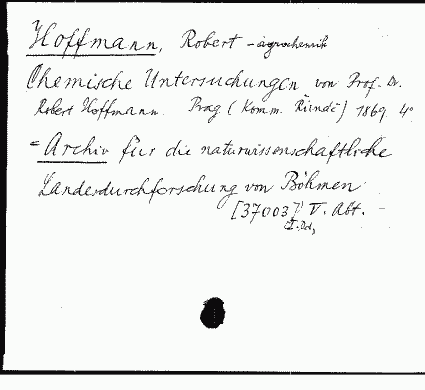 Hoffmann, Robert - agrochemik
Chemische Untersuchungen von Prof. Dr.
Robert Hoffmann. Prag (Komm. Řivnáč) 1869 4°
= Archiv für die naturwissenschaftliche
Landesdurchforschung von Böhmen
[37003] V. Abt. -
I. Bd,